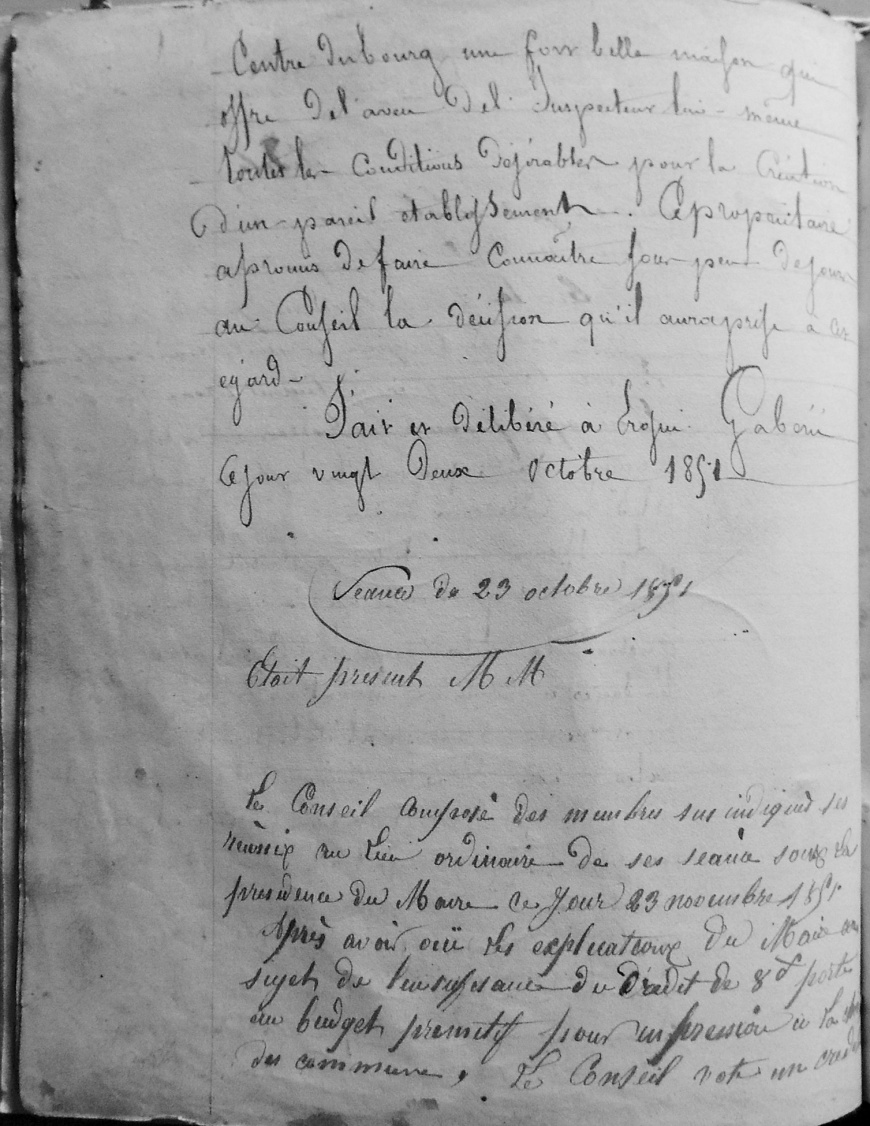 Centre du bourg une fort belle maison qui
offre de l'aveu de l'Inspecteur lui-même
toutes les conditions désirables pour la création
d'un pareil etablissement. Ce propriétaire
a promis de faire connaître sous peu de jours
au Conseil la décision qu'il aura prise à cet
égard -
Fait et délibéré à Erquy Gaboüé
Ce jour vingt deux octobre 1851
Seance du 23 octobre 1851
Etoit present M M
Le Conseil composé des membres sus indiqués ses
reunix au lieu ordinaire de ses seance sous la
presidence du Maire ce jour 23 novembre 1851
Après avoir oüi les explications du Maire au
sujet de l'insufisance du credit de 8 f porté
au budget primitif pour impression à la
des commune, Le Conseil vote un credit